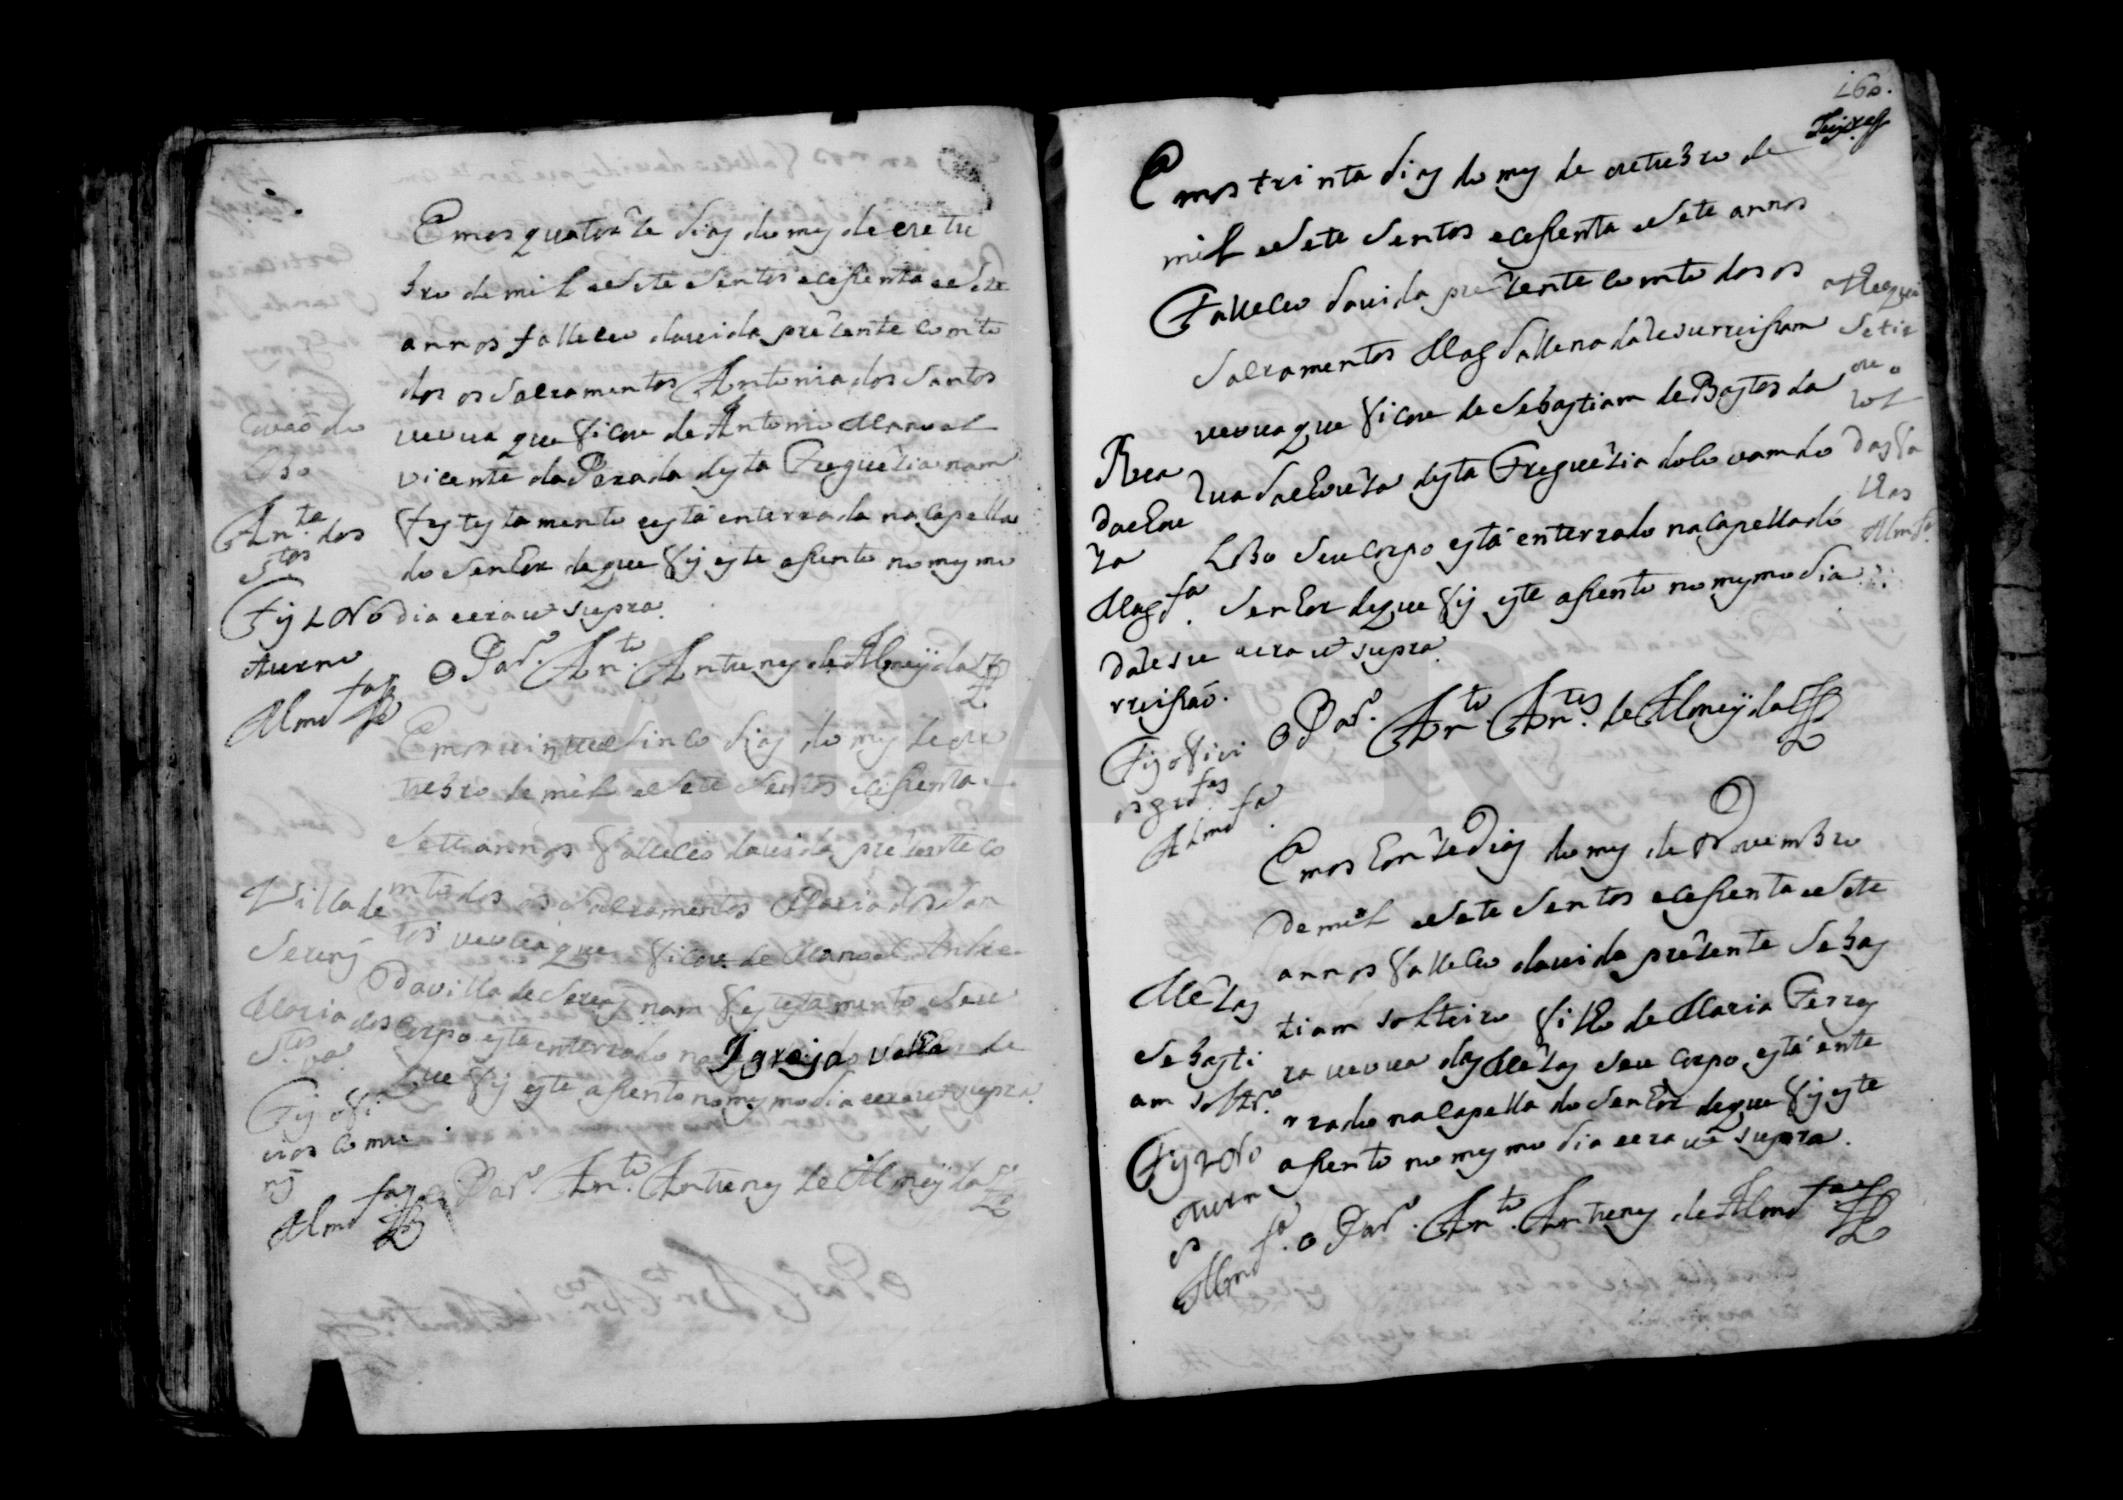 Emos quatorze dias do mes de outu
bro de mil e sete sentos e cesenta e sete
annos falleceo da vida prezente com to
dos os sacramentos Antonia dos Santos
veuva que ficou de Antonio Manoel
vicente da Parada desta Freguezia nam
fes testamento e está enterrada na Capella
do senhor de que fis este asento no mesmo
dia e era ut supra
O Par.º An.to Antunes de Almeyda
Covão do
Lobo
An.ta dos
S.tos
Fis 1 No
cturno
Almd.a
Emos vinte e sinco dias do mes de ou
tubro de mil e sete sentos e cesenta e
sette annos falleceo da vida prezente co
m todos os sacramentos Maria dos San
tos veuva que ficou de Manoel Andre
da villa de Serens nam fes testamento seu
corpo esta enterrado na Igreja velha de
que fis este asento no mesmo dia e era ut supra
O Par.º An.to Antunes de Almeyda
Villa de
Serens
Maria dos
S.tos va
Fis offi
cios comu
ns
Almd.a
160.
Emos trinta dias do mes de outubro de
mil e sete sentos e cesenta e sete annos
Falleceo da vida prezente com todos os
sacramentos Magdallena da Resurreisam
veuva que ficou de Sebastiam de Bastos da
Rua da Ervoza desta Freguezia do Covam do
Lobo seu corpo está enterrado na Capella do
senhor de que fis este asento no mesmo dia
e era ut supra
O Par.º An.to An.tes de Almeyda
Magd.a
da Resu
rreisão.
Fis offici
os
Almd.a
Emos honze Dias do mes de Novembro
de mil e sete sentos e cesenta e sete
annos falleceo da vida prezente Sebas
tiam solteiro filho de Maria Ferrey
ra veuva das Mezas seu corpo está ente
rrado na Capella do senhor de que fis este
asento no mesmo dia e era ut supra.
O Par.º An.to Antunes de Almd.a
Mezas
Sebasti
am solt.ro
Fis 2 No
cturn
os
Almd.a
ADAVR